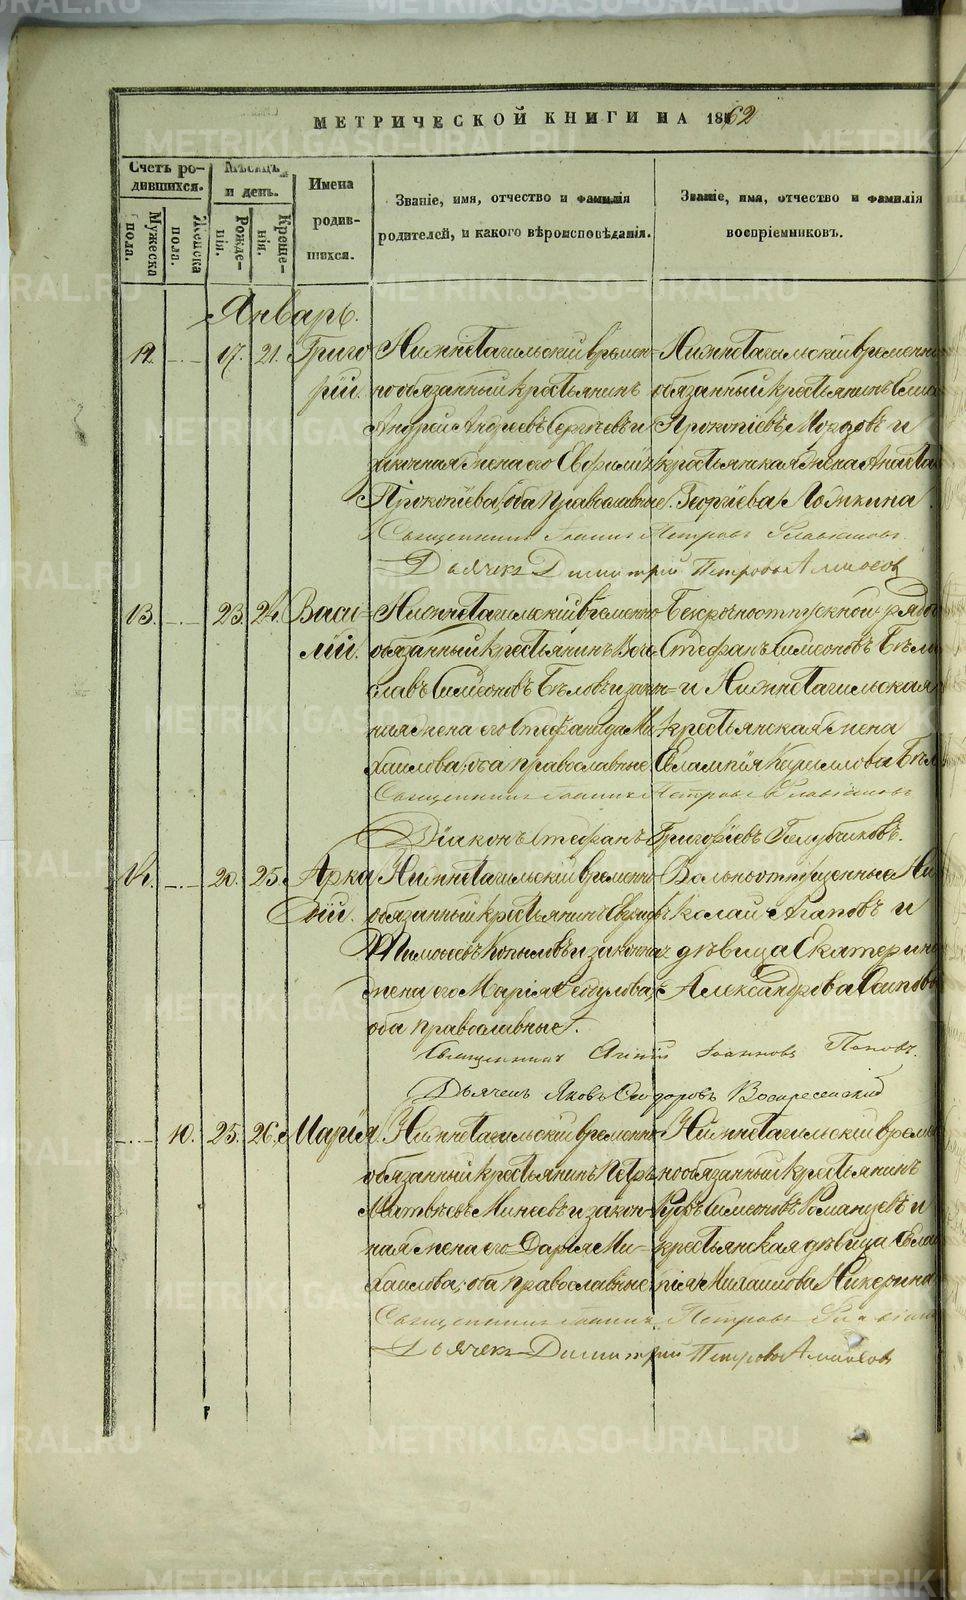 МЕТРИЧЕСКОЙ КНИГИ НА 1862
Счетъ ро-
дившихся.
Мужеска пола.
Женска пола.
Мѣсяцъ
и день.
Рожде-
нія.
Креще-
нія.
Имена
родив-
шихся.
Званіе, имя, отчество и фамилія
родителей, и какого вѣроисповѣданія.
Званіе, имя, отчество и фамилія
воспріемниковъ.
Январь.
12. 17. 21. Григо
рій.
Нижнетагильскій времен-
нообязанный крестьянинъ
Андрей Андреевъ Сергѣевъ и
законная жена его
Прокопіева, оба православные
Нижнетагильскій временно
обязанный крестьянинъ
Прокопіевъ и
крестьянская жена
Георгіева
Священникъ Іоаннъ Петровъ
Дьячекъ Димитрій Петровъ
13. 23. 24. Васи-
лій.
Нижнетагильскій временно
обязанный крестьянинъ
Симеоновъ Бѣловъ и закон-
ная жена его Стефанида Ми
хаилова, оба православные.
Безсрочноотпускной рядо
Стефанъ Симеоновъ Бѣло
и Нижнетагильская
крестьянская жена
Евлампія Кириллова Бѣл
Священникъ Іоаннъ Петровъ
Діаконъ Стефанъ Григоріевъ Голубчиковъ.
14. 20. 25. Арка
дій.
Нижнетагильскій временно
обязанный крестьянинъ
Тимофеевъ Копыловъ и законна
жена его Марія Федулова,
оба православные.
Вольноотпущенные Ни
колай Агаповъ и
дѣвица Екатерина
Александрова Осипов
Священникъ Іоанновъ Поповъ.
Дьячекъ Яковъ Сидоровъ Воскресенский
10. 25. 26. Марія.
Нижнетагильскій временно
обязанный крестьянинъ Петръ
Матвѣевъ Минеевъ и закон-
ная жена его Дарія Ми-
хаилова, оба православные
Нижнетагильскій време
нообязанный крестьянинъ
Симеоновъ Романцевъ и
крестьянская дѣвица Евлам
пія Никерина
Священникъ Іоаннъ Петровъ
Дьячекъ Димитрій Петровъ
METRIKI.GASO-URAL.RU